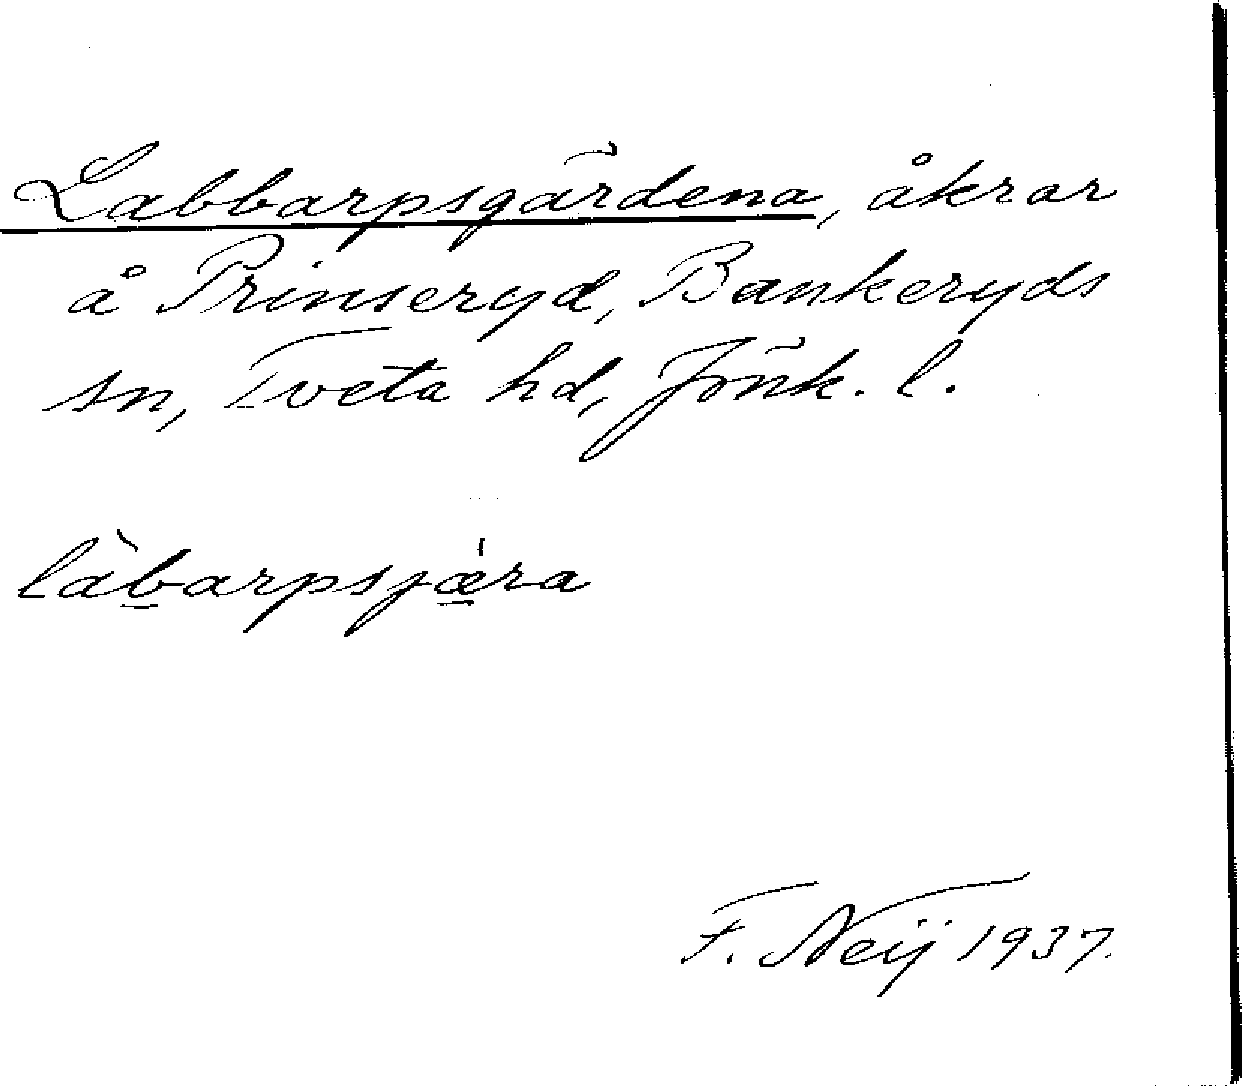 Labbarpsgärdena, åkrar
å Prinseryd, Bankeryds
sn, Tveta hd, Jönk. l.
làb̲arpsjǽ̲ra
F. Neij 1937.